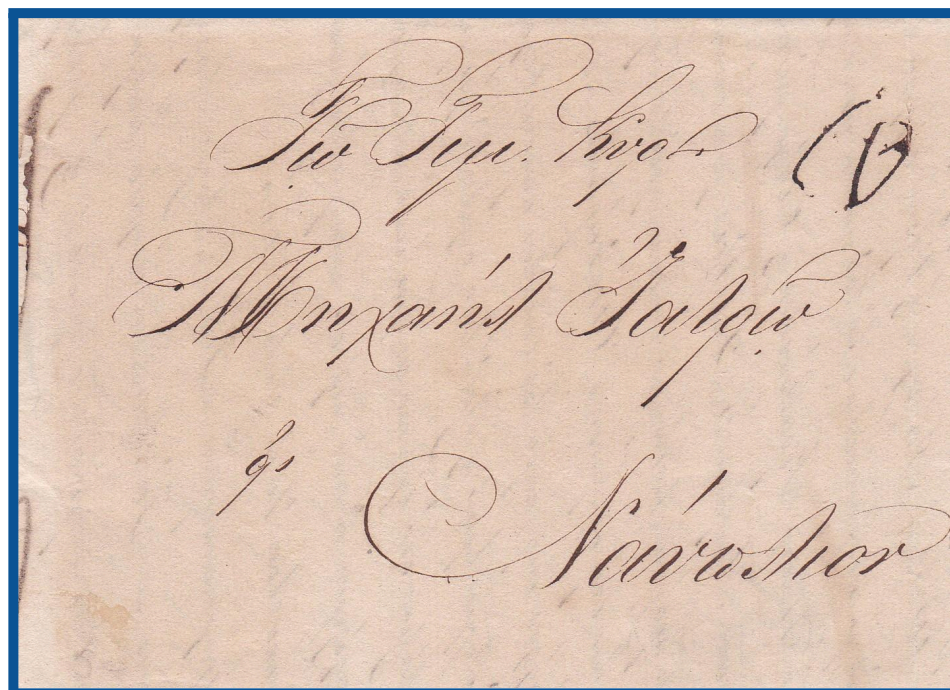 Τῷ Τιμ. Κυρῳ
Μηχαήλ Ἰατρῷ
εἰς
Ναύπλιον